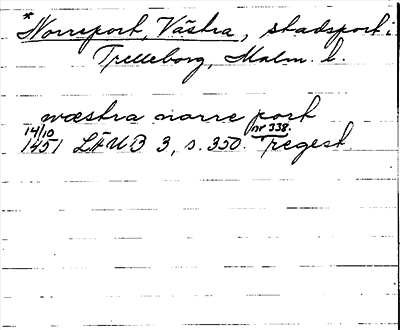 * Norreport, Västra, stadsport i
Trelleborg, Malm. l.
wæstra norre port
14/10 nr 338.
1451 LÄUB 3, s. 350. regest.